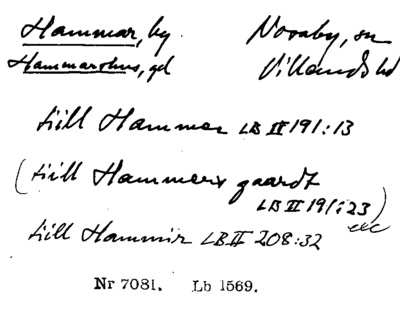 Hammar, by Norraby, sn
Hammarshus, gd Villands hd
till Hammer LB II 191:13
(till Hammers gaardt
LB II 191:23)
etc
till Hammir LB II 208:32
Nr 7081. Lb 1569.